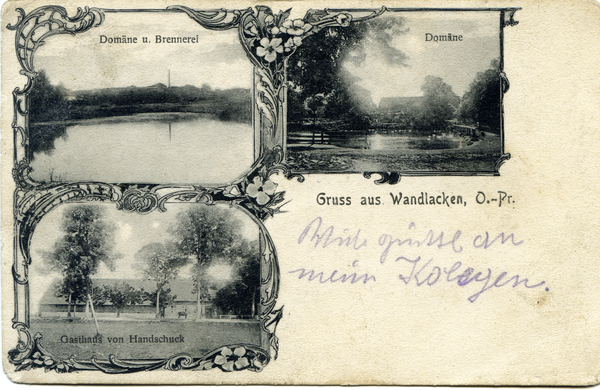 Domäne u. Brennerei
Domäne
Gruss aus Wandlacken, O.-Pr.
Gasthaus von Handschuck
Viele grüße an
meine Kolegen.